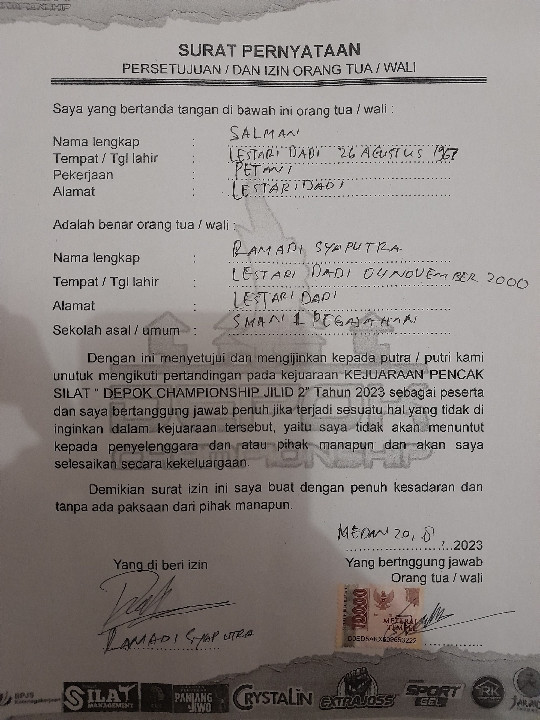 SURAT PERNYATAAN
PERSETUJUAN / DAN IZIN ORANG TUA / WALI
Saya yang bertanda tangan di bawah ini orang tua / wali :
Nama lengkap : SALMAN
Tempat / Tgl lahir : LESTARI DADI 26 AGUSTUS 1967
Pekerjaan : PETANI
Alamat : LESTARI DADI
Adalah benar orang tua / wali :
Nama lengkap : RAMADI SYAPUTRA
Tempat / Tgl lahir : LESTARI DADI 04 NOVEMBER 2000
Alamat : LESTARI DADI
Sekolah asal / umum : SMAN 1 PEGAJAHAN
Dengan ini menyetujui dan mengijinkan kepada putra / putri kami
unutuk mengikuti pertandingan pada kejuaraan KEJUARAAN PENCAK
SILAT " DEPOK CHAMPIONSHIP JILID 2" Tahun 2023 sebagai peserta
dan saya bertanggung jawab penuh jika terjadi sesuatu hal yang tidak di
inginkan dalam kejuaraan tersebut, yaitu saya tidak akan menuntut
kepada penyelenggara dan atau pihak manapun dan akan saya
selesaikan secara kekeluargaan.
Demikian surat izin ini saya buat dengan penuh kesadaran dan
tanpa ada paksaan dari pihak manapun.
MEDAN 20, 8 2023
Yang di beri izin
Yang bertnggung jawab
Orang tua / wali
10000
METERAI
TEMPEL
RAMADI SYAPUTRA
BPJS
Ketenagakerjaan
SILAT
MANAGEMENT
PANJANG
JIWO
CRYSTALIN
EXTRAJOSS
SPORT
GEL
RK